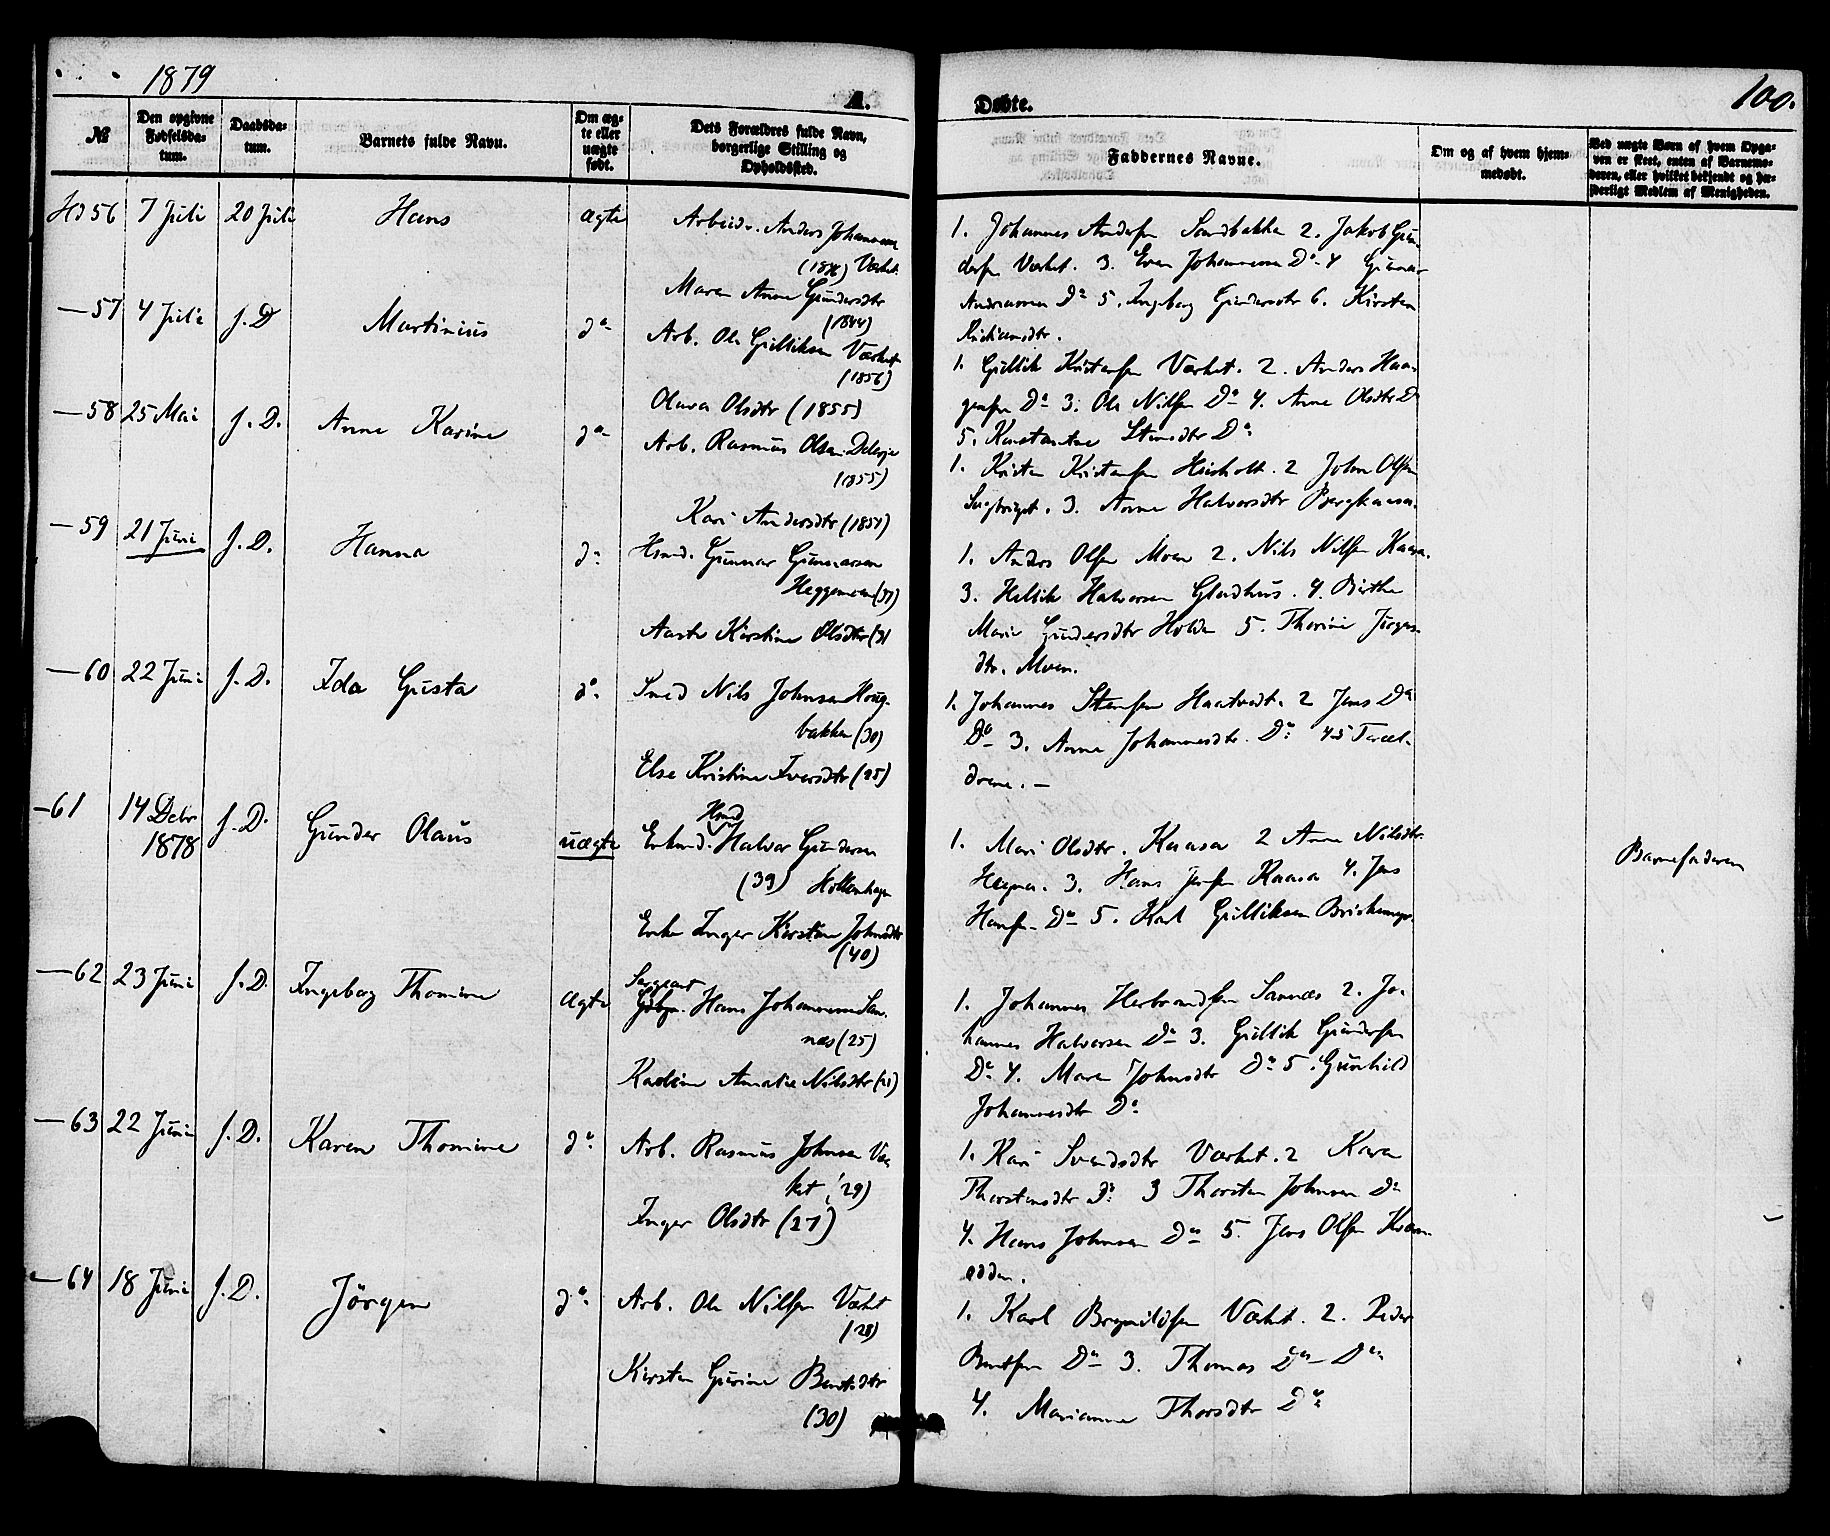 1879
A. Døbte.
100.
№
Den opgivne Fødselsda-tum.
Daabsda-tum.
Barnets fulde Navn.
Om æg-te eller uægte født.
Dets Forældres fulde Navn, borgerlige Stilling og Opholdssted.
Faddernes Navne.
Om og af hvem hjem-medøbt.
Ved uægte Børn af hvem Opga-ven er skeet, enten af Barnemo-deren, eller hvilket bekjendt og hæ-derligt Medlem af Menigheden.
56 7 Juli 20 Juli Hans ægte
Anders Johannesen
Værket
Maren Anne Gundersdtr
(1844)
1. Johannes Andersen Sandbakken 2. Jakob Gun-
dersen Værket. 3. Even Johannessen Do 4 Gunnar
Andreassen Do 5. Ingeborg Gundersdtr 6. Kirsten
Kristiansdtr.
57 4 Juli s. D Martinius do
Arb. Ole Gulliksen Værket
(1856)
Olava Olsdtr (1855)
1. Gullik Kristensen Værket. 2. Anders Haa-
gensen Do 3. Ole Nilsen Do 4. Anne Olsdtr Do
5. Do
58 25 Mai s. D. Anne Karine do
Arb. Rasmus Olsen
(1855)
Kari Andersdtr (1851)
1. Kristen Kristensen 2 John Olsen
3. Anne Halvorsdtr
59 21 Juni s. D. Hanna do
Hsmd. Gunnar Gunnarsen
Heggemoen (37)
Aaste Kirstine Olsdtr
1. Anders Olsen Moen 2. Nils Nilsen Kaasa.
3. Hellik Halvorsen Gladhus. 4. Birthe
Marie Gundersdtr Holden 5. Thorine Jørgens-
dtr. Moen.
60 22 Juni s. D. Ida Gusta do
Smed Nils Johnsen Houg-
bakken (30)
Else Kristine Iversdtr (25)
1. Johannes Stensen Haatvedt. 2 Jens Do
Do 3. Anne Johannesdtr. Do 4 5 Foræl-
drene. —
61 14 Debr 1878 s. D. Gunder Olaus uægte
Hsmd
Enkmd. Halvor Gundersen
(39)
Enke Inger Kirstine Johnsdtr
(40)
1. Mari Olsdtr. Kaasa 2 Anne Nilsdtr.
3. Hans Jensen Kaasa 4. Jens
Hansen Do 5. Karl Gulliksen
Barnefaderen
62 23 Juni s. D. Ingeborg Thomine ægte
Sergeant
Hans Johannesen San-
næs (25)
Amalie Nilsdtr
1. Johannes Herbrandsen Sannæs 2. Jo-
hannes Halvorsen Do 3. Gullik Gundersen
Do 4. Maren Johnsdtr Do 5. Gunhild
Johannesdtr Do
63 22 Juni s. D. Karen Thomine do
Arb. Rasmus Johnsen Vær-
ket (29)
Inger Olsdtr (27)
1. Kari Svendsdtr Værket. 2 Karen
Thorstensdtr Do 3 Thorsten Johnsen Do
4. Hans Johnsen Do 5. Jens Olsen
64 18 Juni s. D. Jörgen do
Arb. Ole Nilsen Værket
(28)
Kirsten Gurine Bentsdtr
(30)
1. Karl Brynildsen Værket. 2. Peder
Bentsen Do 3. Thomas Do Do
4. Marianne Thorsdtr Do